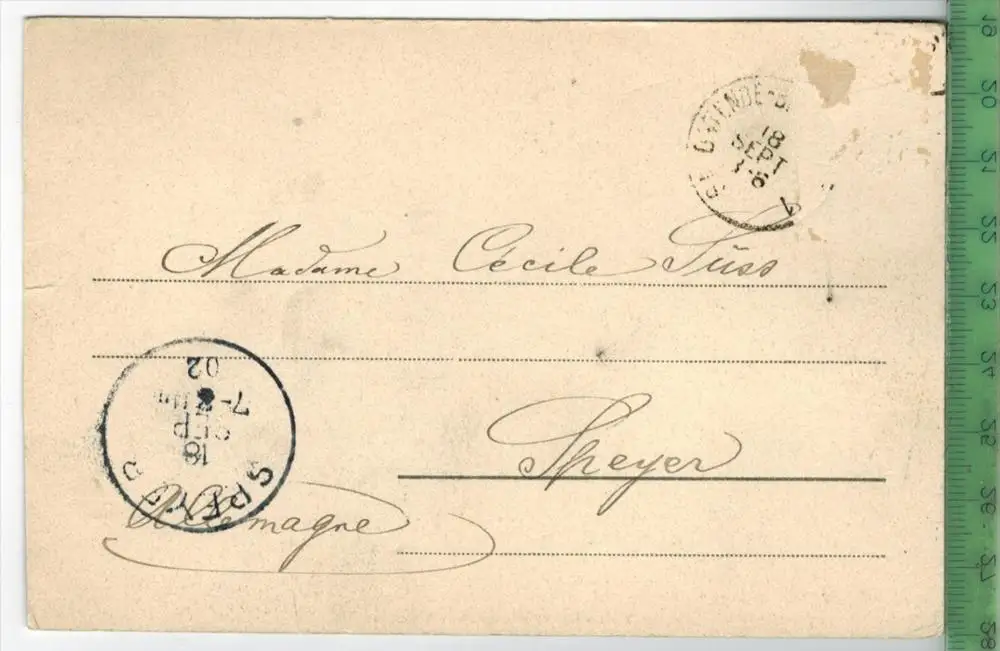 OSTENDE-B
18
SEPT
Madame Cécile Süss
Speyer
Allemagne
SPEYER
18
SEP
7-8
02
19
20
21
22
23
24
25
26
27
28